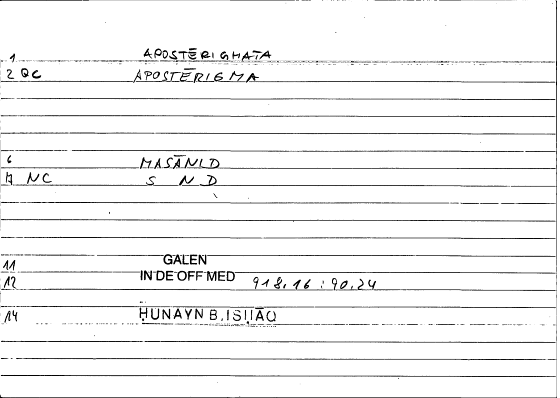 1 APOSTĒRIGHATA
2 QC APOSTĒRIGMA
6 MASĀNID
A NC S N D
11 GALEN
12 IN DE OFF MED 918,16 : 90,24
14 ḤUNAYN B. ISḤĀQ